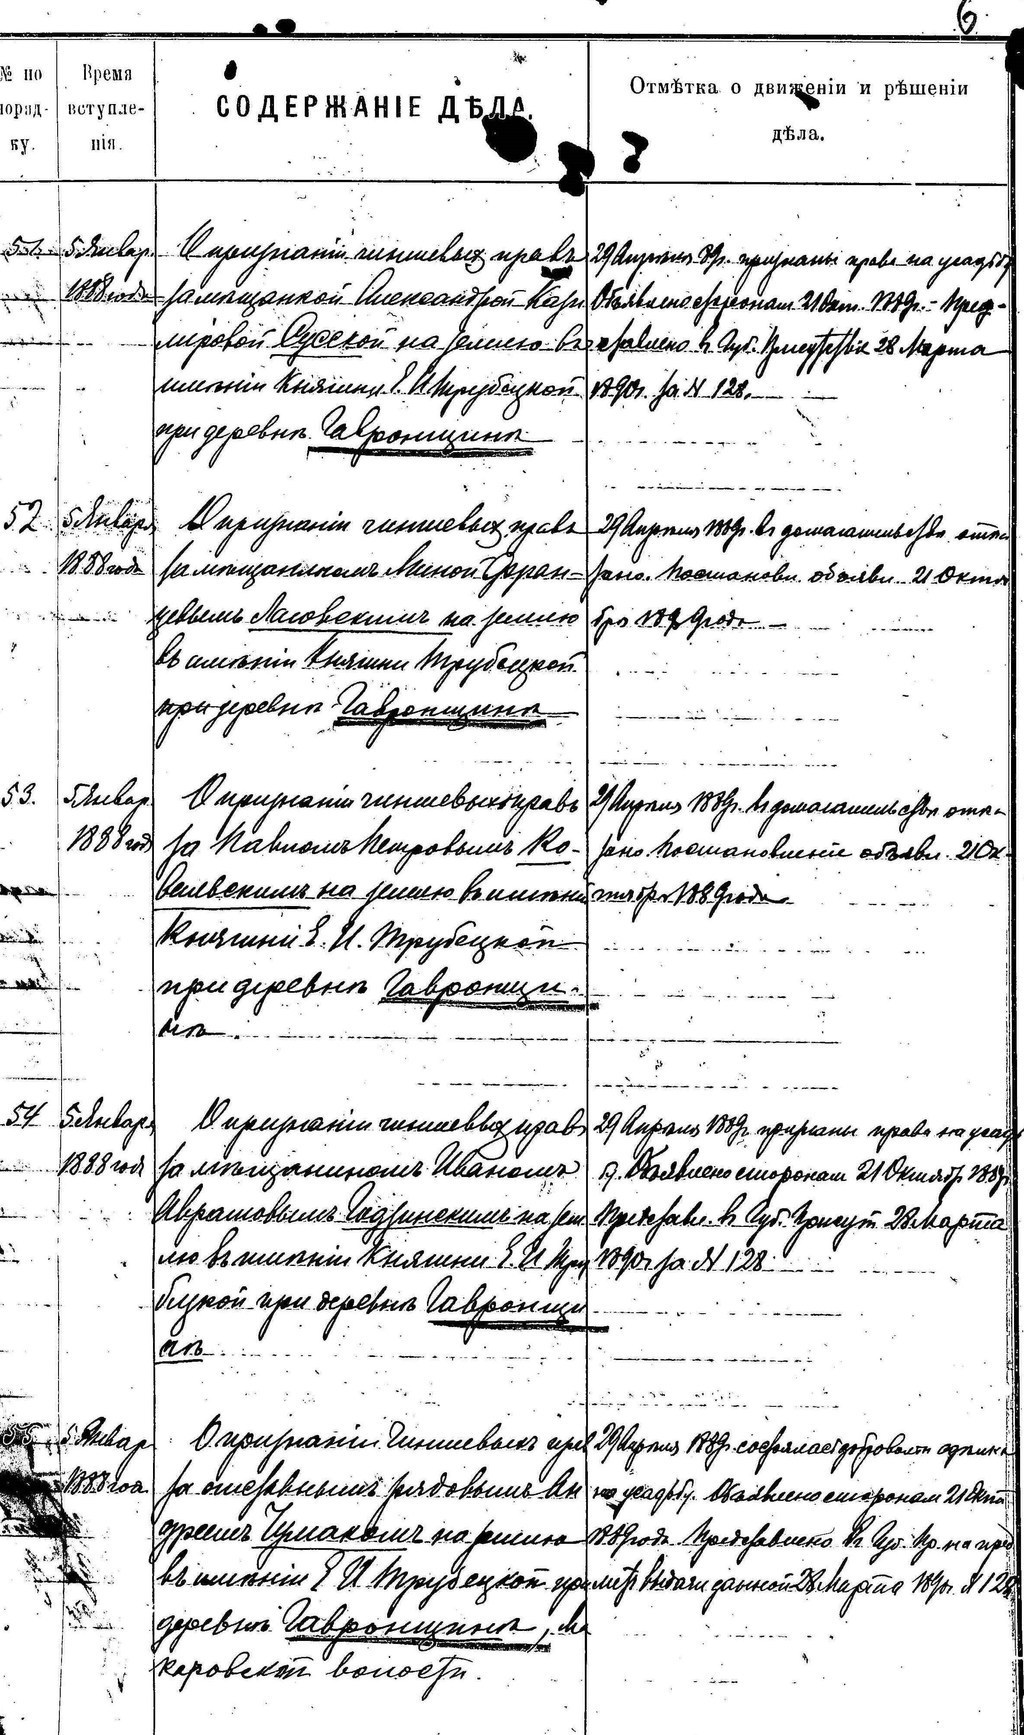 6
№ по поряд- ку.
Время вступле- нія.
СОДЕРЖАНІЕ ДѢЛА.
Отмѣтка о движеніи и рѣшеніи дѣла.
51
5 Январ.
1888 года
О признаніи чиншевыхъ правъ
за мѣщанкой Александрой Кази
міровой Сусской на землю въ
имѣніи Княгини Е. И Трубецкой
при деревнѣ Гавронщинѣ
29 Апрѣля 89г. признаны права на усадьбу
Объявлено сторонам 21 Окт. 1889г. - Пред-
ставлено въ Губ. Присутствіе 28 Марта
1890г. за N 128.
52
5 Январ.
1888 года
О признаніи чиншевыхъ правъ
за мѣщаниномъ Миной Фран-
цевымъ Лисовскимъ на землю
въ имѣніи Княгини Трубецкой
при деревнѣ Гавронщинѣ
29 Апрѣля 1889г. въ домагательствѣ отка
зано. Постановл. объявл. 21 Октя
бря 1889 года
53.
5 Январ.
1888 год
О признаніи чиншевыхъ правъ
за Павломъ Петровымъ Ко-
валевскимъ на землю въ имѣніи
Княгини Е. И. Трубецкой
при деревнѣ Гавронщи-
нѣ.
29 Апрѣля 1889г. въ домагательствѣ отка-
зано. Постановленіе объявл. 21 Ок-
тября 1889 года.
54
5 Январ.
1888 год
О признаніи чиншевыхъ правъ
за мѣщаниномъ Иваномъ
Аврамовымъ Годзинскимъ на зем
лю въ имѣніи Княгини Е. И Тру
бецкой при деревнѣ Гавронщи
нѣ
29 Апрѣля 1889г. признаны права на усадь
бу. Объявлено сторонам 21 Октябр. 1889г.
Представл. въ Губ. Присут. 28 Марта
1890г за N 128
55
5 Январ
1888 года
О признаніи чиншевыхъ прав
за отставнымъ рядовымъ Ан
дреемъ Чумакомъ на землю
въ имѣніи Е И Трубецкой при
деревнѣ Гавронщинѣ, Ма
каровской волости.
29 Апрѣля 1889г. состоялась добровольн сдѣлка
на усадьбу. Объявлено сторонам 21 Окт
1889 года Представлено въ Губ. Пр. на пред
метъ выдачи данной 28 Марта 1890г. N 128